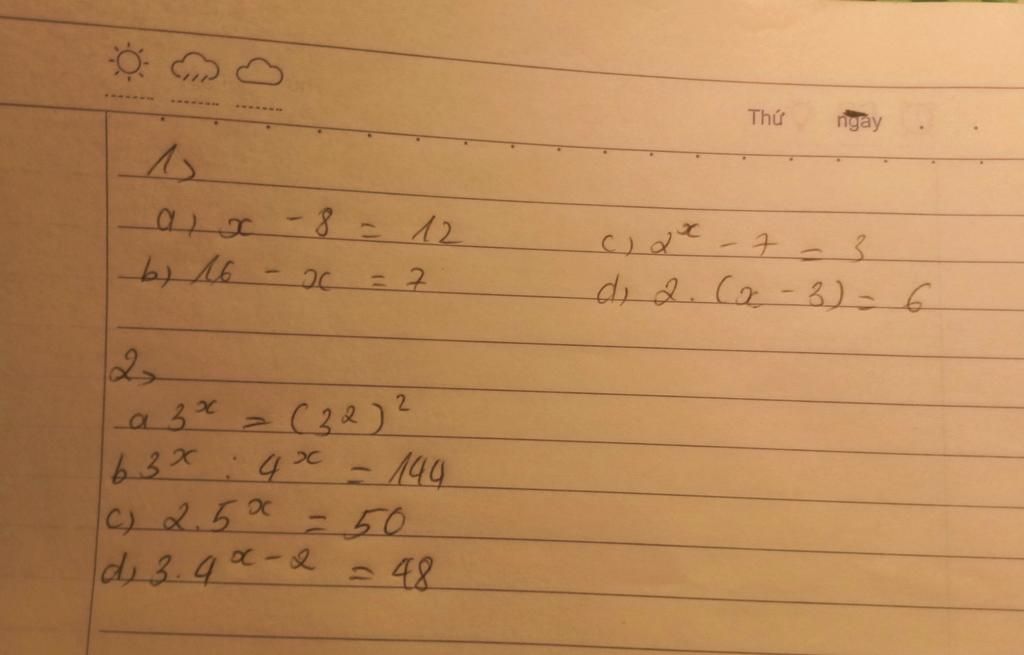 Thứ ngày
1)
a) x - 8 = 12
b) 16 - x = 7
c) 2^x - 7 = 3
d) 2 . (x - 3) = 6
2)
a 3^x = (3^2)^2
b 3^x : 4^x = 144
c) 2.5^x = 50
d) 3.4^{x-2} = 48